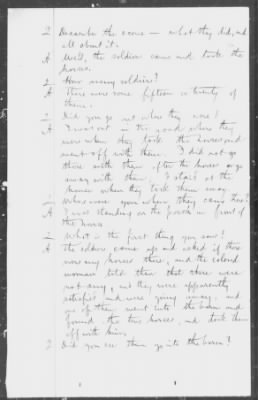 Q Describe the scene – what they did, and
all about it.
A Well, the soldiers came and took the
horses.
Q How many soldiers?
A There were some fifteen or twenty of
them.
Q Did you go out where they were?
A I was out in the road where they
were when they took the horses and
went off with them. I did not go
there with them after the horses
away with them. I staid at the
house when they took them away
Q Where were you when they came there?
A I was standing on the porch in front of
the house
Q What is the first thing you saw?
A The soldiers came up and asked if there
were any horses there, and the colored
woman told them that there were
not any, and they were apparently
satisfied and were going away, and
one of them went into the barn and
found the two horses, and took them
off with him.
Q Did you see them go into the barn?